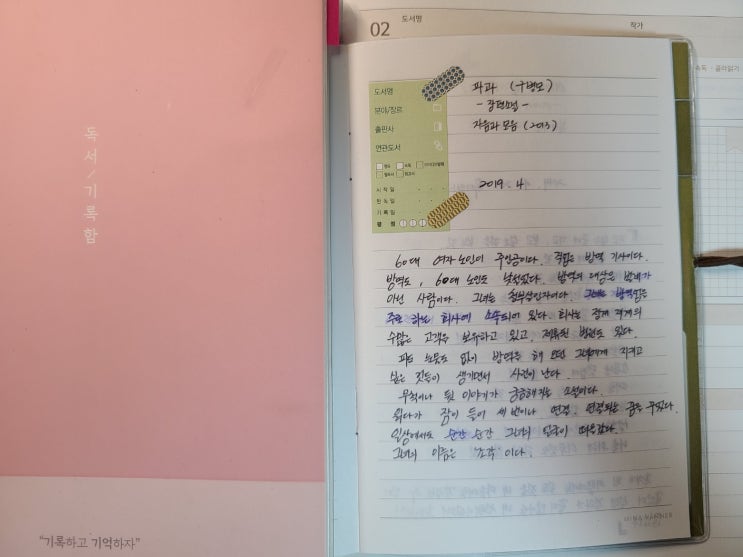 독서/기록함
"기록하고 기억하자"
02
도서명
작가
도서명
파과 (구병모)
분야/장르
-장편소설-
출판사
자음과 모음 (2013)
연관도서
시작일
2019. 4
완독일
기록일
평점
60대 여자 노인이 주인공이다. 직업은 방역 기사이다.
방역도, 60대 노인도 낯설었다. 방역의 대상은 벌레가
아닌 사람이다. 그녀는 청부살인자이다. 그녀는 방역업을
주로 하는 회사에 소속되어 있다. 회사는 정계 재계의
수많은 고객을 보유하고 있고, 제휴된 병원도 있다.
피도 눈물도 없이 방역을 해 오던 그녀에게 지키고
싶은 것들이 생기면서 사건이 난다.
무척이나 뒷 이야기가 궁금해지는 소설이다.
읽다가 잠이 들어 세 번이나 연결. 연결되는 꿈을 꾸었다.
일상에서도 순간 순간 그녀의 얼굴이 떠올랐다.
그녀의 이름은 '조각'이다.